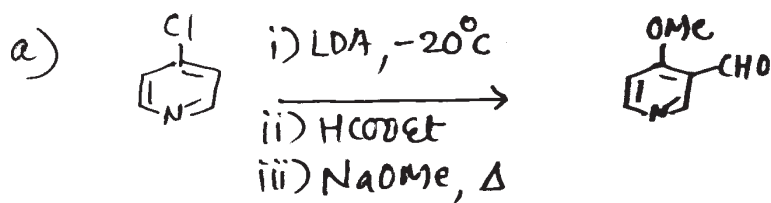 a)
Cl
N
i) LDA, -20°C
ii) HCOOEt
iii) NaOMe, Δ
OMe
CHO
N